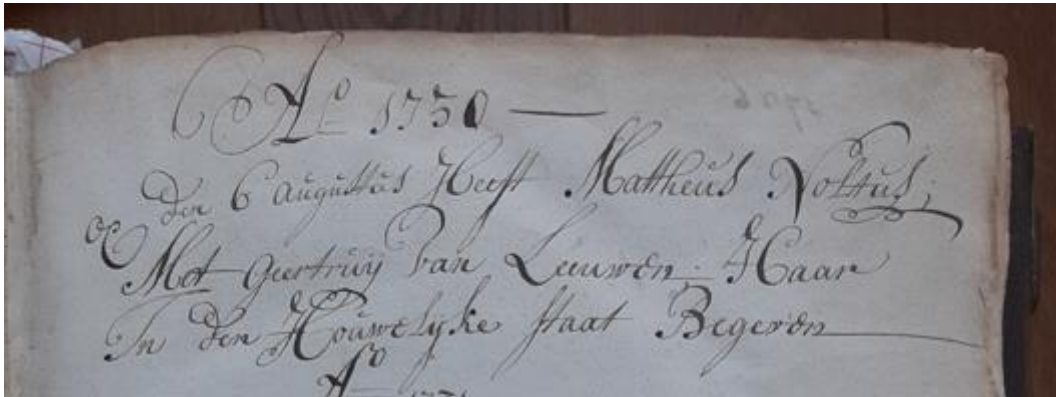 Ao 1730
Den 6 Augustus Heeft Mattheus Noltus;
Met Geertruij Van Leeuwen Haar
In den Houwelyke staat Begeven
Ao